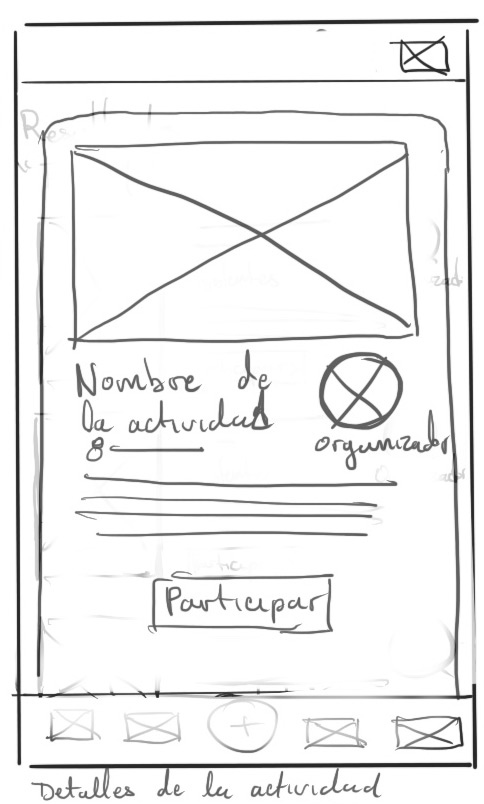 Nombre de
la actividad
organizador
Participar
Detalles de la actividad